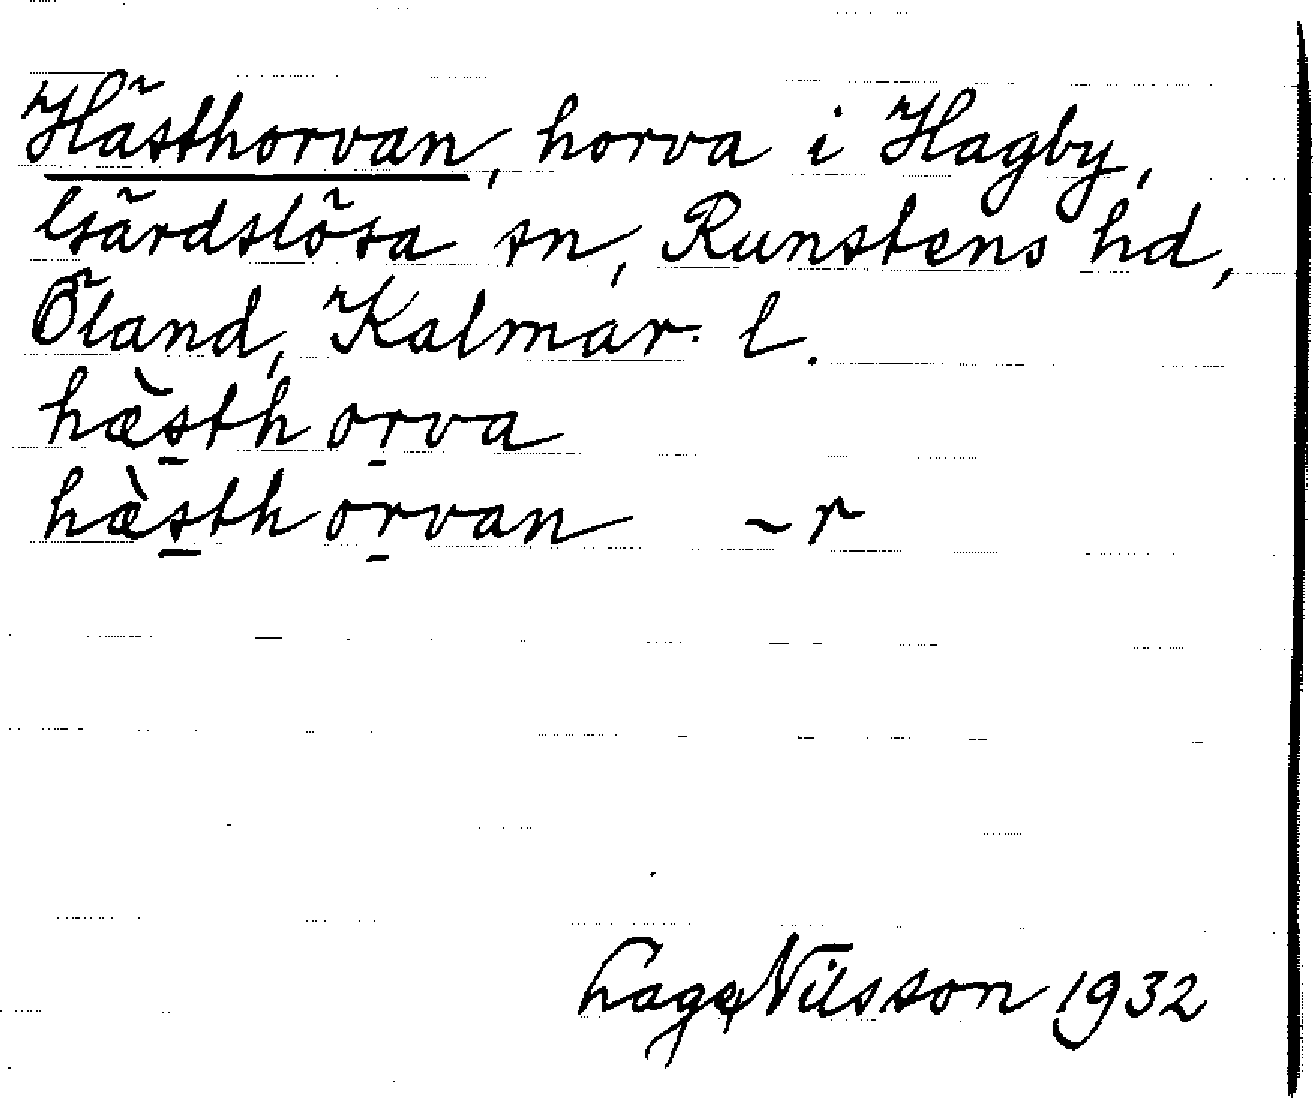 Hästhorvan, horva i Hagby,
Gärdslösa sn, Runstens hd,
Öland, Kalmar l.
hæ̀s̠thor̠va
hæ̀s̠thor̠van ~r
Lage Nilsson 1932